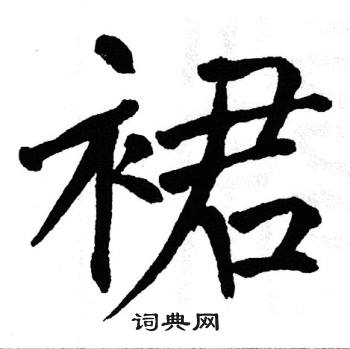 裙
词典网